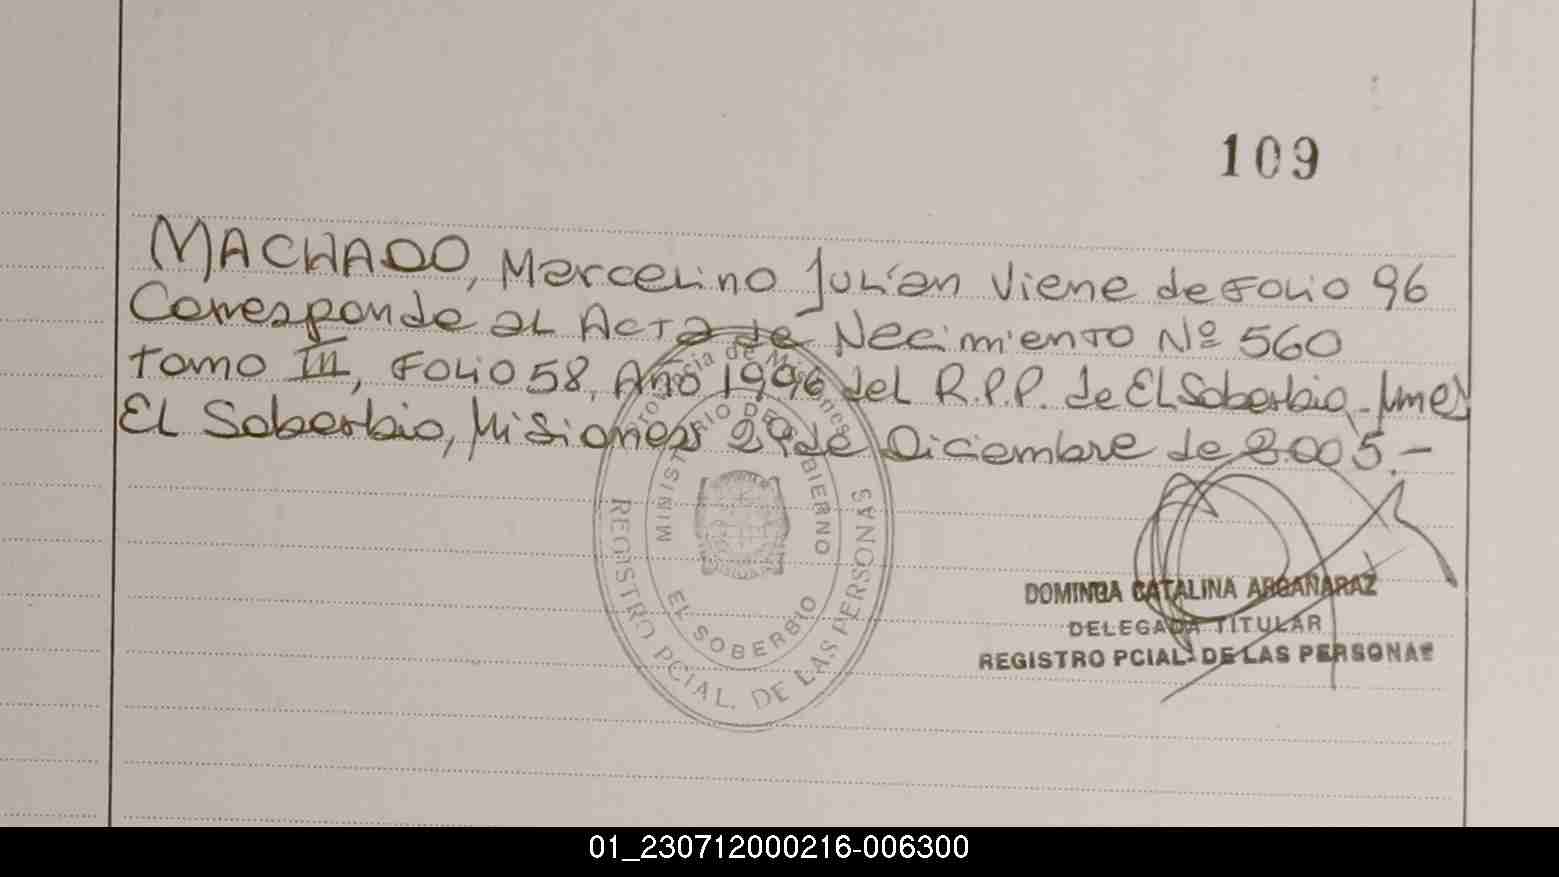 109
MACHADO, Marcelino Julián Viene de Folio 96
Corresponde al Acta de Nacimiento Nº 560
Tomo III, Folio 58, Año 1996 del R.P.P. de El Soberbio, Mnes
El Soberbio, Misiones 29 de Diciembre de 2005.-
Provincia de Misiones
MINISTERIO DE GOBIERNO
EL SOBERBIO
REGISTRO PCIAL. DE LAS PERSONAS
DOMINGA CATALINA ARGAÑARAZ
DELEGADA TITULAR
REGISTRO PCIAL. DE LAS PERSONAS
01_230712000216-006300